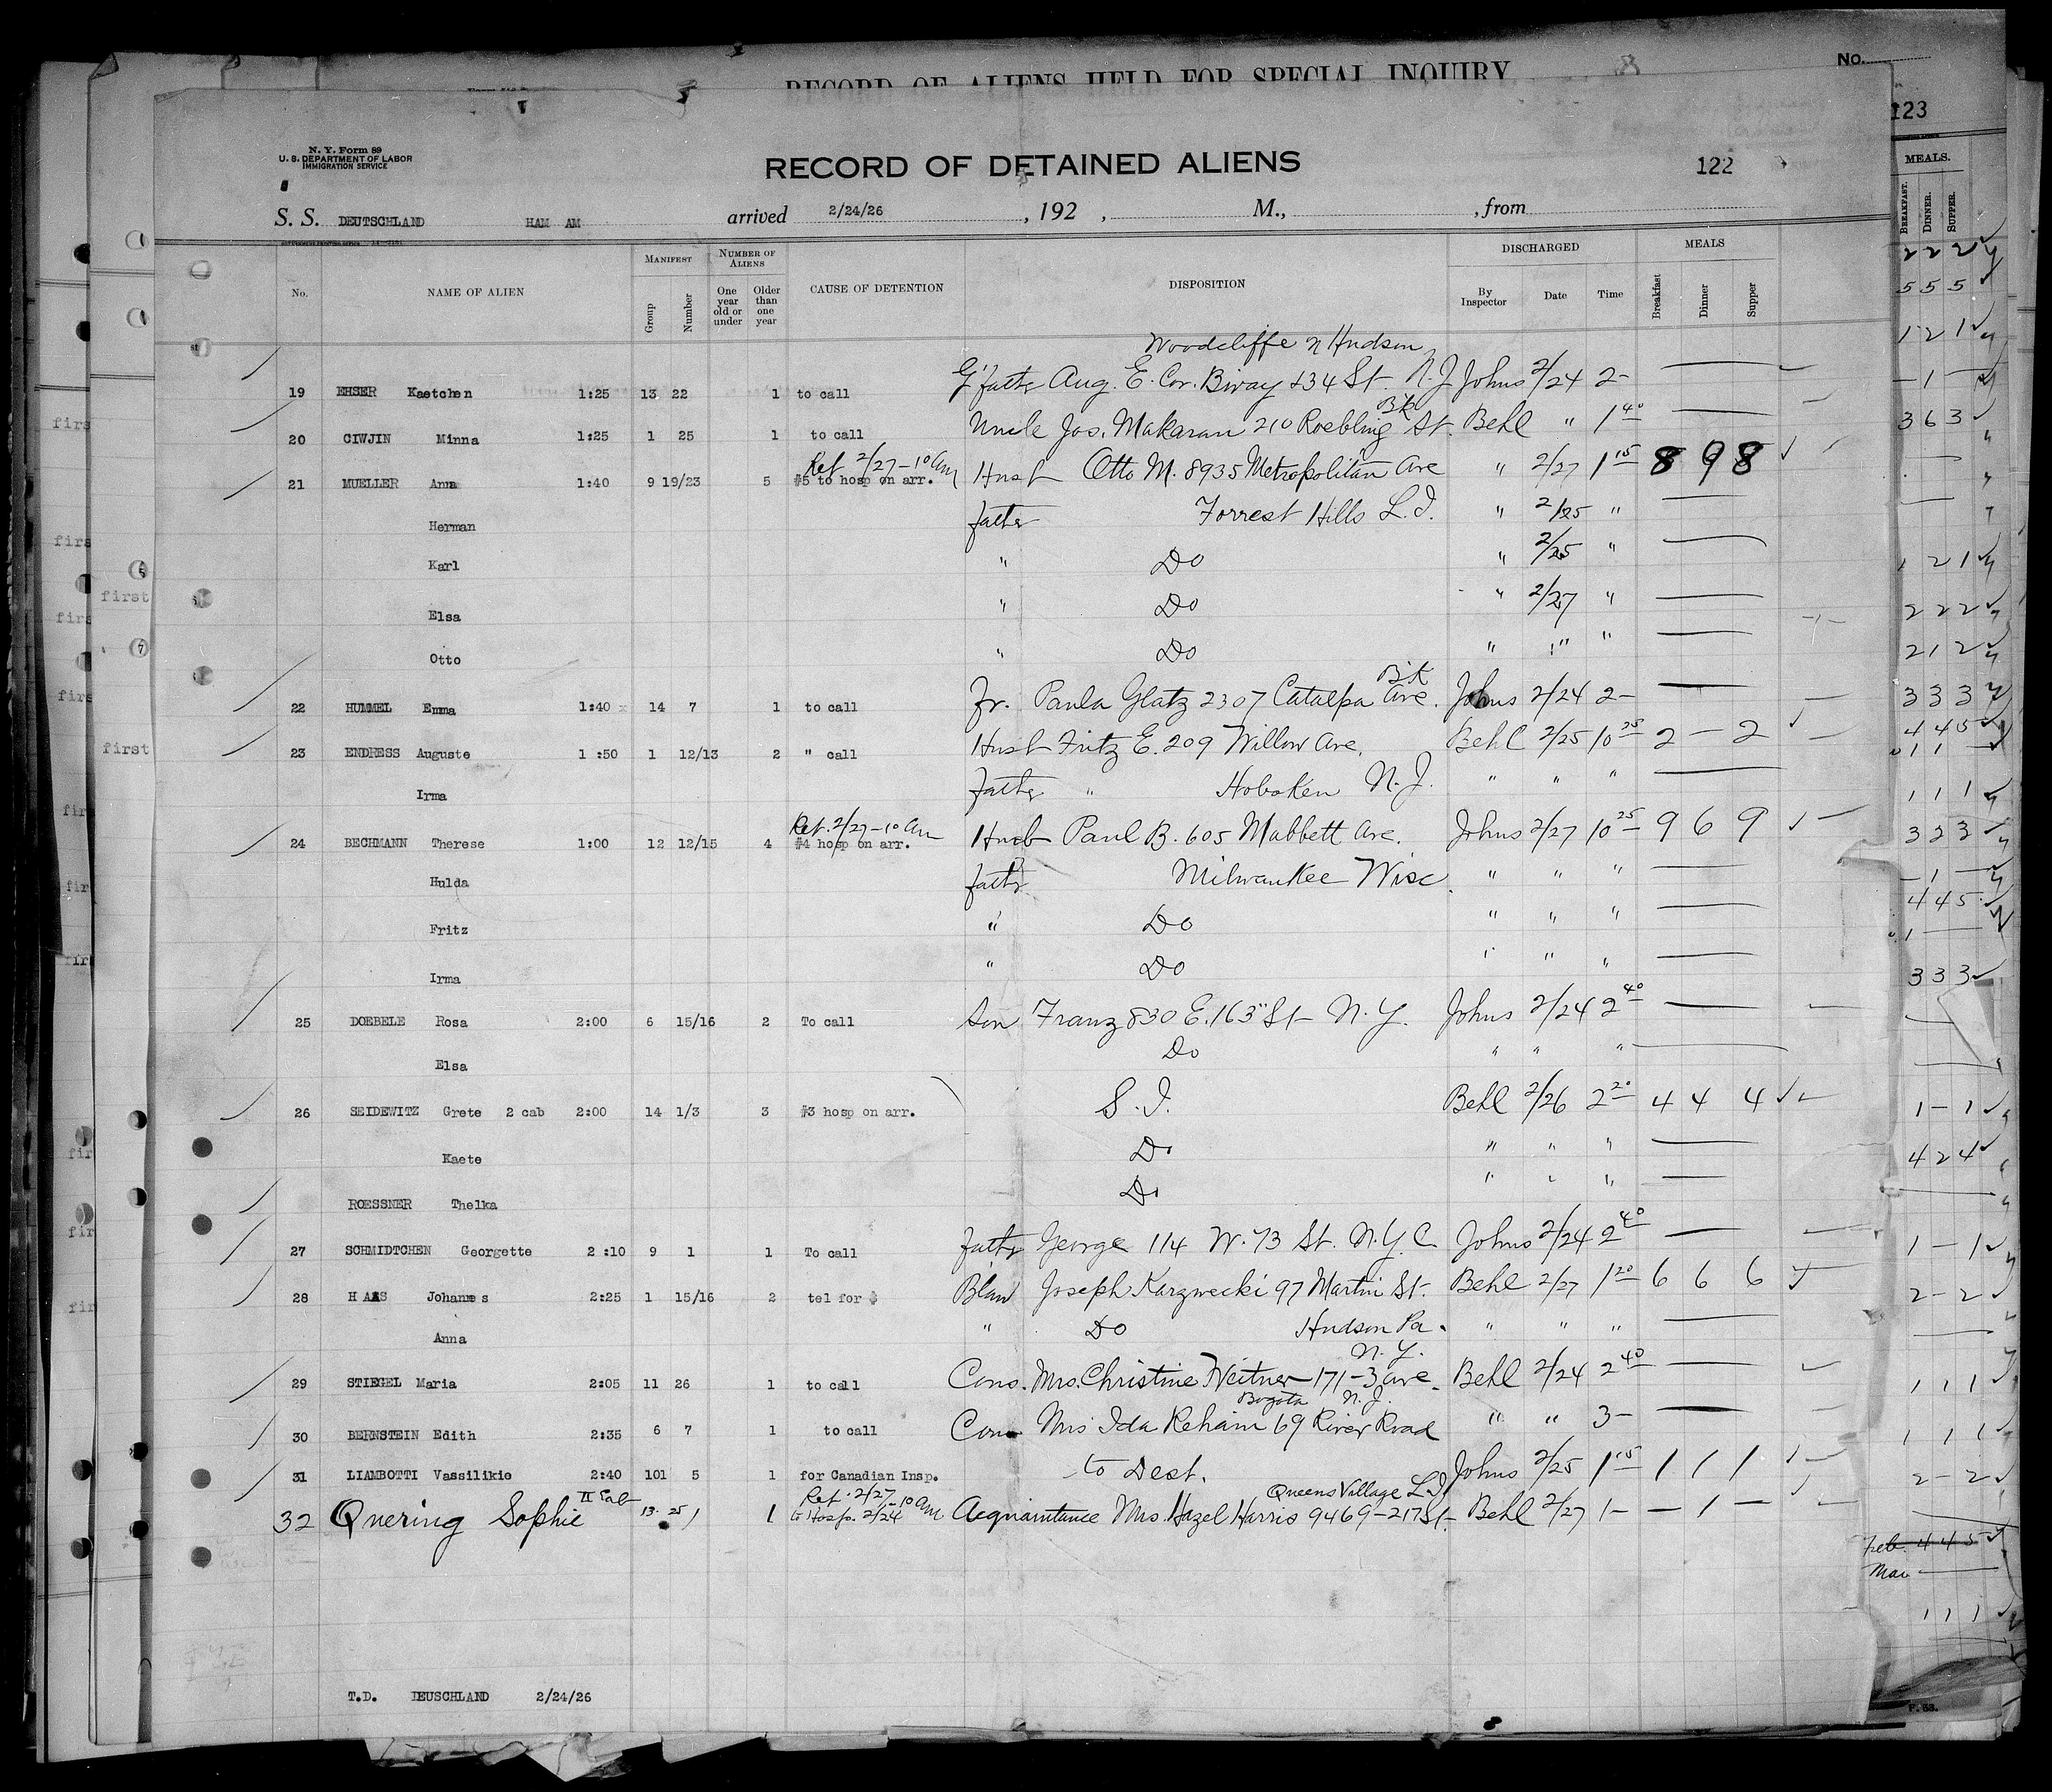 RECORD OF ALIENS HELD FOR SPECIAL INQUIRY
No.
123
N. Y. Form 89
U. S. DEPARTMENT OF LABOR
IMMIGRATION SERVICE
RECORD OF DETAINED ALIENS
122
S. S. DEUTSCHLAND HAM AM arrived 2/24/26, 192 , M., , from
No. NAME OF ALIEN MANIFEST Group Number NUMBER OF ALIENS One year old or under Older than one year CAUSE OF DETENTION DISPOSITION DISCHARGED By Inspector Date Time MEALS Breakfast Dinner Supper
MEALS. BREAKFAST. DINNER. SUPPER.
Woodcliffe N Hudson
19 EHSER Kaetchen 1:25 13 22 1 to call G'father Aug. E. Cor. Bway & 34 St. N.J Johns 2/24 2-
Bk
20 CIWJIN Minna 1:25 1 25 1 to call Uncle Jos. Makaran 210 Roebling St. Behl " 1 40
Ret 2/27 - 10 Am
21 MUELLER Anna 1:40 9 19/23 5 #5 to hosp on arr. Husb Otto M. 8935 Metropolitan Ave " 2/27 1 15 8 9 8
Herman father Forrest Hills L.I. " 2/25 "
Karl " Do " 2/25 "
Elsa " Do " 2/27 "
Otto " Do " " "
Bk
22 HUMMEL Emma 1:40 14 7 1 to call Fr. Paula Glatz 2307 Catalpa Ave. Johns 2/24 2-
23 ENDRESS Auguste 1 :50 1 12/13 2 " call Husb Fritz E. 209 Willow Ave. Behl 2/25 10 25 2 - 2
Irma father " Hoboken N.J. " " "
Ret. 2/27 - 10 Am
24 BECHMANN Therese 1:00 12 12/15 4 #4 hosp on arr. Husb Paul B. 605 Mabbett Ave. Johns 2/27 10 25 9 6 9
Hulda fathr Milwaukee Wisc. " " "
Fritz " Do " " "
Irma " Do " " "
25 DOEBELE Rosa 2:00 6 15/16 2 To call Son Franz 830 E. 163" St - N.Y. Johns 2/24 2 40
Elsa Do " " "
26 SEIDEWITZ Grete 2 cab 2:00 14 1/3 3 #3 hosp on arr. S.I. Behl 2/26 2 20 4 4 4
Kaete Do " " "
ROESSNER Thelka Do " " "
27 SCHMIDTCHEN Georgette 2 :10 9 1 1 To call fathr George 114 W. 73 St. N.Y.C Johns 2/24 2 40
28 HAAS Johannes 2:25 1 15/16 2 tel for $ B'law Joseph Karzwecki 97 Martin St. Behl 2/27 1 20 6 6 6
Anna " Do Hudson Pa. " " "
N.Y.
29 STIEGEL Maria 2:05 11 26 1 to call Cous. Mrs. Christine Weitner - 171 - 3 ave. Behl 2/24 2 40
Bogota N.J.
30 BERNSTEIN Edith 2:35 6 7 1 to call Cous Mrs Ida Reham 69 River Road " " 3-
31 LIAMBOTTI Vassilikie 2:40 101 5 1 for Canadian Insp. to Dest. Johns 2/25 1 15 1 1 1
II Cab Ret. 2/27 - 10 Am Queens Village L.I.
32 Quering Sophie 13 25 1 to Hosp. 2/24 Acquaintance Mrs. Hazel Harris 9469 - 217 St - Behl 2/27 1- - 1 -
T.D. DEUSCHLAND 2/24/26
first
first
Feb. 4 4 5
Mar
F. 53.